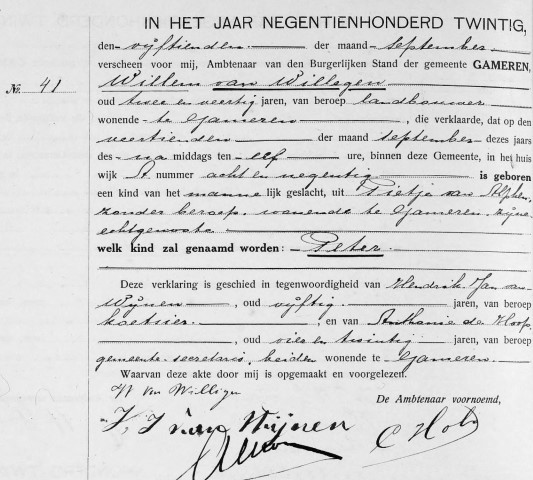 IN HET JAAR NEGENTIENHONDERD TWINTIG,
den vijftienden der maand september
verscheen voor mij, Ambtenaar van den Burgerlijken Stand der gemeente GAMEREN,
No. 41
Willem van Willigen
oud twee en veertig jaren, van beroep landbouwer
wonende te Gameren, die verklaarde, dat op den
veertienden der maand september dezes jaars
des na middags ten elf ure, binnen deze Gemeente, in het huis
wijk A. nummer acht en negentig is geboren
een kind van het mannelijk geslacht, uit Pietje van Alphen,
zonder beroep, wonende te Gameren, zijne
echtgenoote
welk kind zal genaamd worden: Peter.
Deze verklaring is geschied in tegenwoordigheid van Hendrik Jan van
Wijnen, oud vijftig jaren, van beroep
koetsier, en van Anthonie de Hoop,
, oud vier en twintig jaren, van beroep
gemeente-secretaris, beiden wonende te Gameren.
Waarvan deze akte door mij is opgemaakt en voorgelezen.
W van Willigen
De Ambtenaar voornoemd,
H J van Wijnen